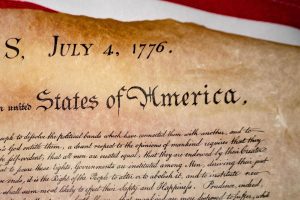 S, JULY 4, 1776.
united States of America,
people to dissolve the political bands which have connected them with another, and to
God entitle them, a decent respect to the opinions of mankind requires that they
be self-evident, that all men are created equal, that they are endowed by their Creator
to secure these rights, Governments are instituted among Men, deriving their just
ends, it is the Right of the People to alter or to abolish it, and to institute new
shall seem most likely to effect their Safety and Happiness. Prudence, indeed,